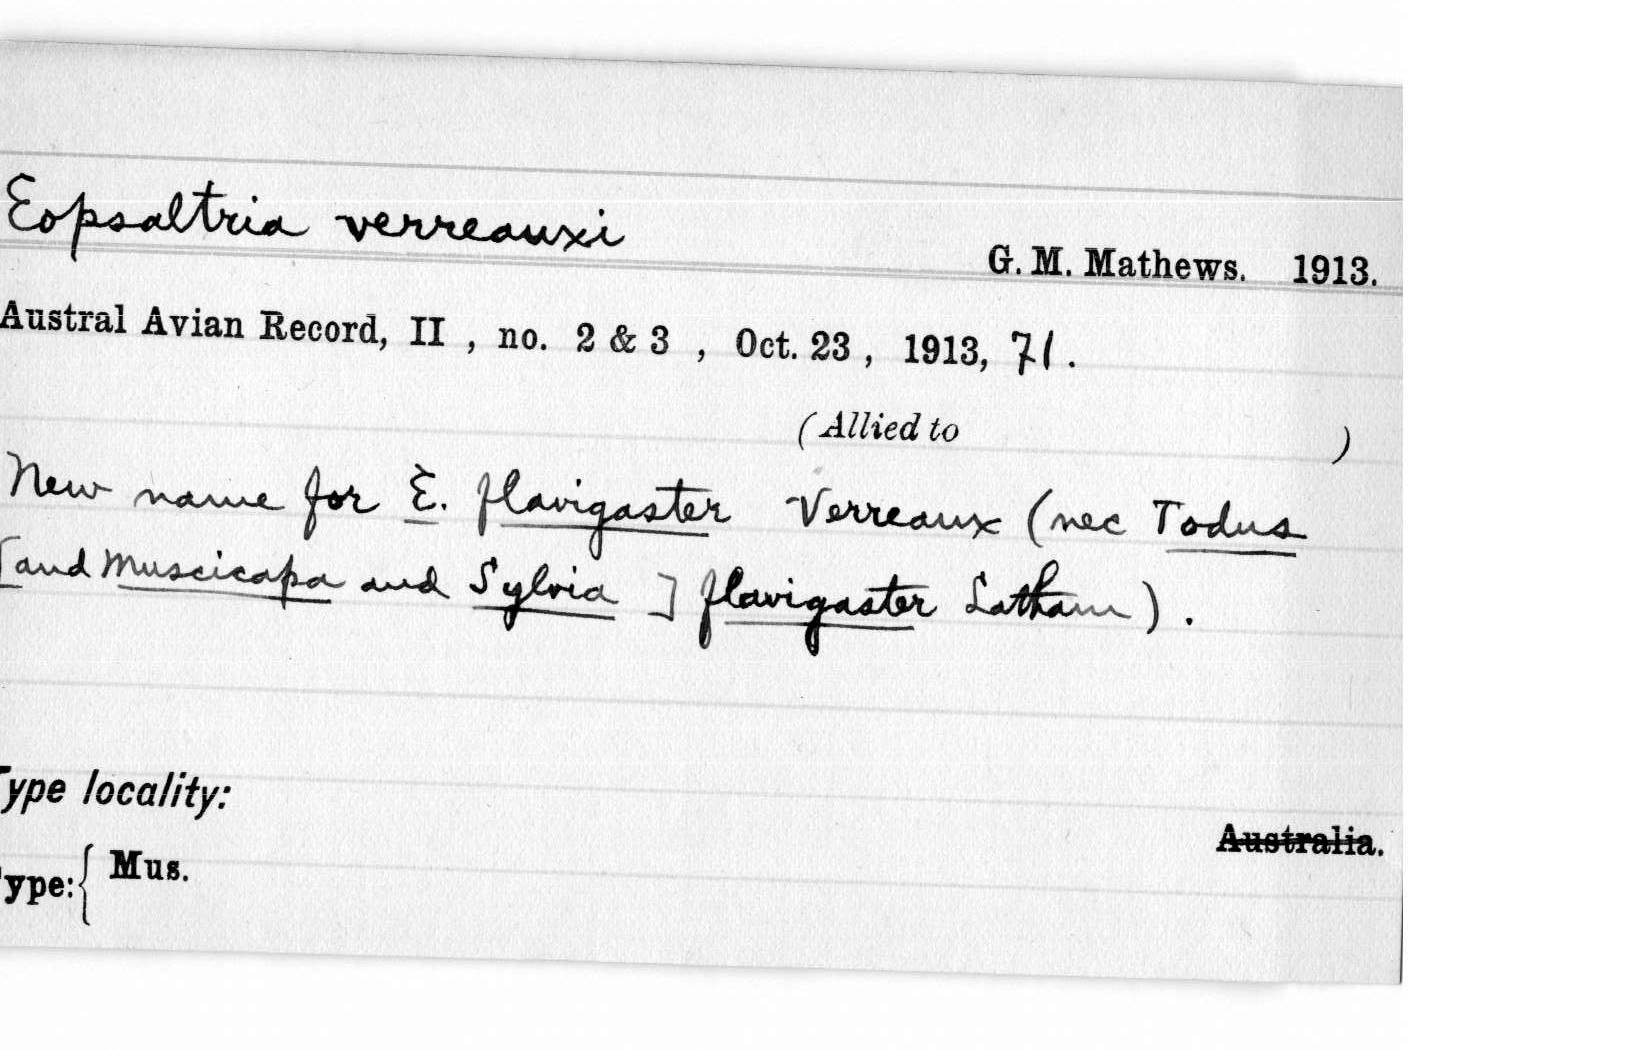 Eopsaltria verreauxi
G. M. Mathews. 1913.
Austral Avian Record, II , no. 2 & 3 , Oct. 23 , 1913, 71 .
(Allied to )
New name for E. flavigaster Verreaux (nec Todus
[and Muscicapa and Sylvia ] flavigaster Latham) .
Type locality:
Australia.
ype: { Mus.